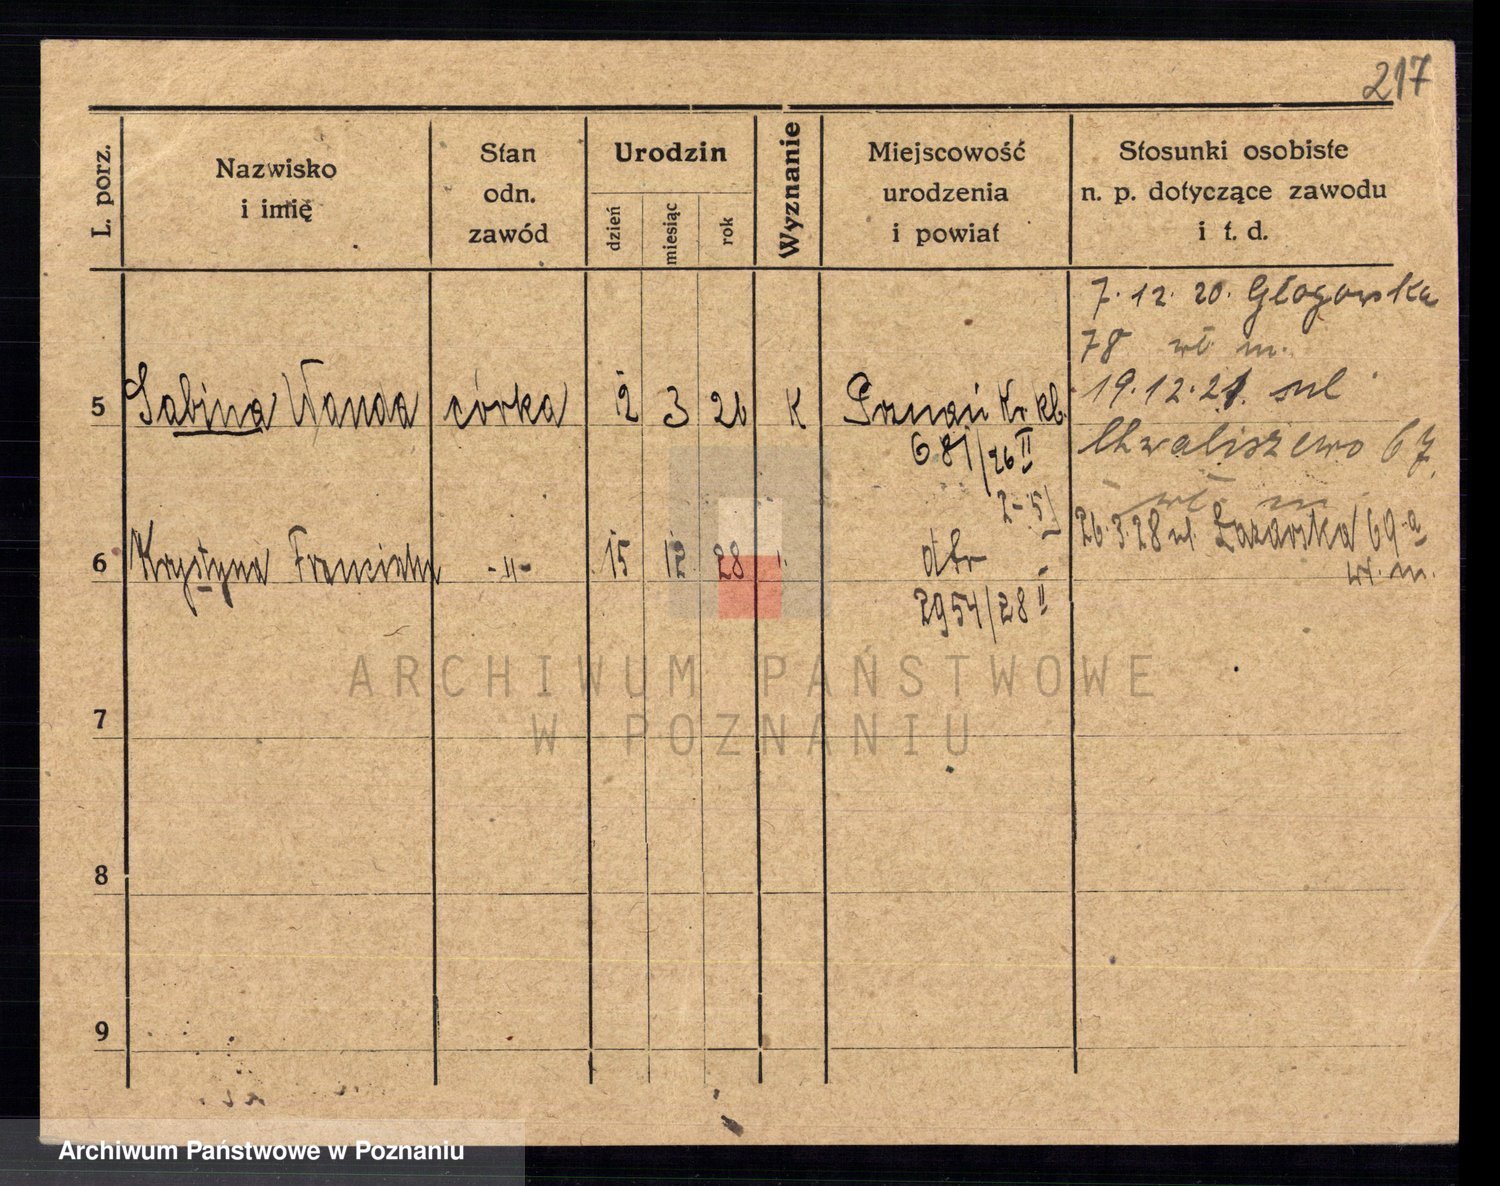 217
L. porz.
Nazwisko
i imię
Stan
odn.
zawód
Urodzin
dzień
miesiąc
rok
Wyznanie
Miejscowość
urodzenia
i powiat
Stosunki osobiste
n. p. dotyczące zawodu
i t. d.
7. 12. 20. Głogowska
78 wł. m.
19. 12. 21. ul
Chwaliszewo 67
wł. m
5 Sabina Wanda córka 2 3 26 K Poznań
681/26 II
6 Krystyna -"- 15 12 28 dtr
26. 3. 28 ul. Łazarska 69a
wł. m.
2954/28 II
7
8
9
ARCHIWUM PAŃSTWOWE
W POZNANIU
Archiwum Państwowe w Poznaniu